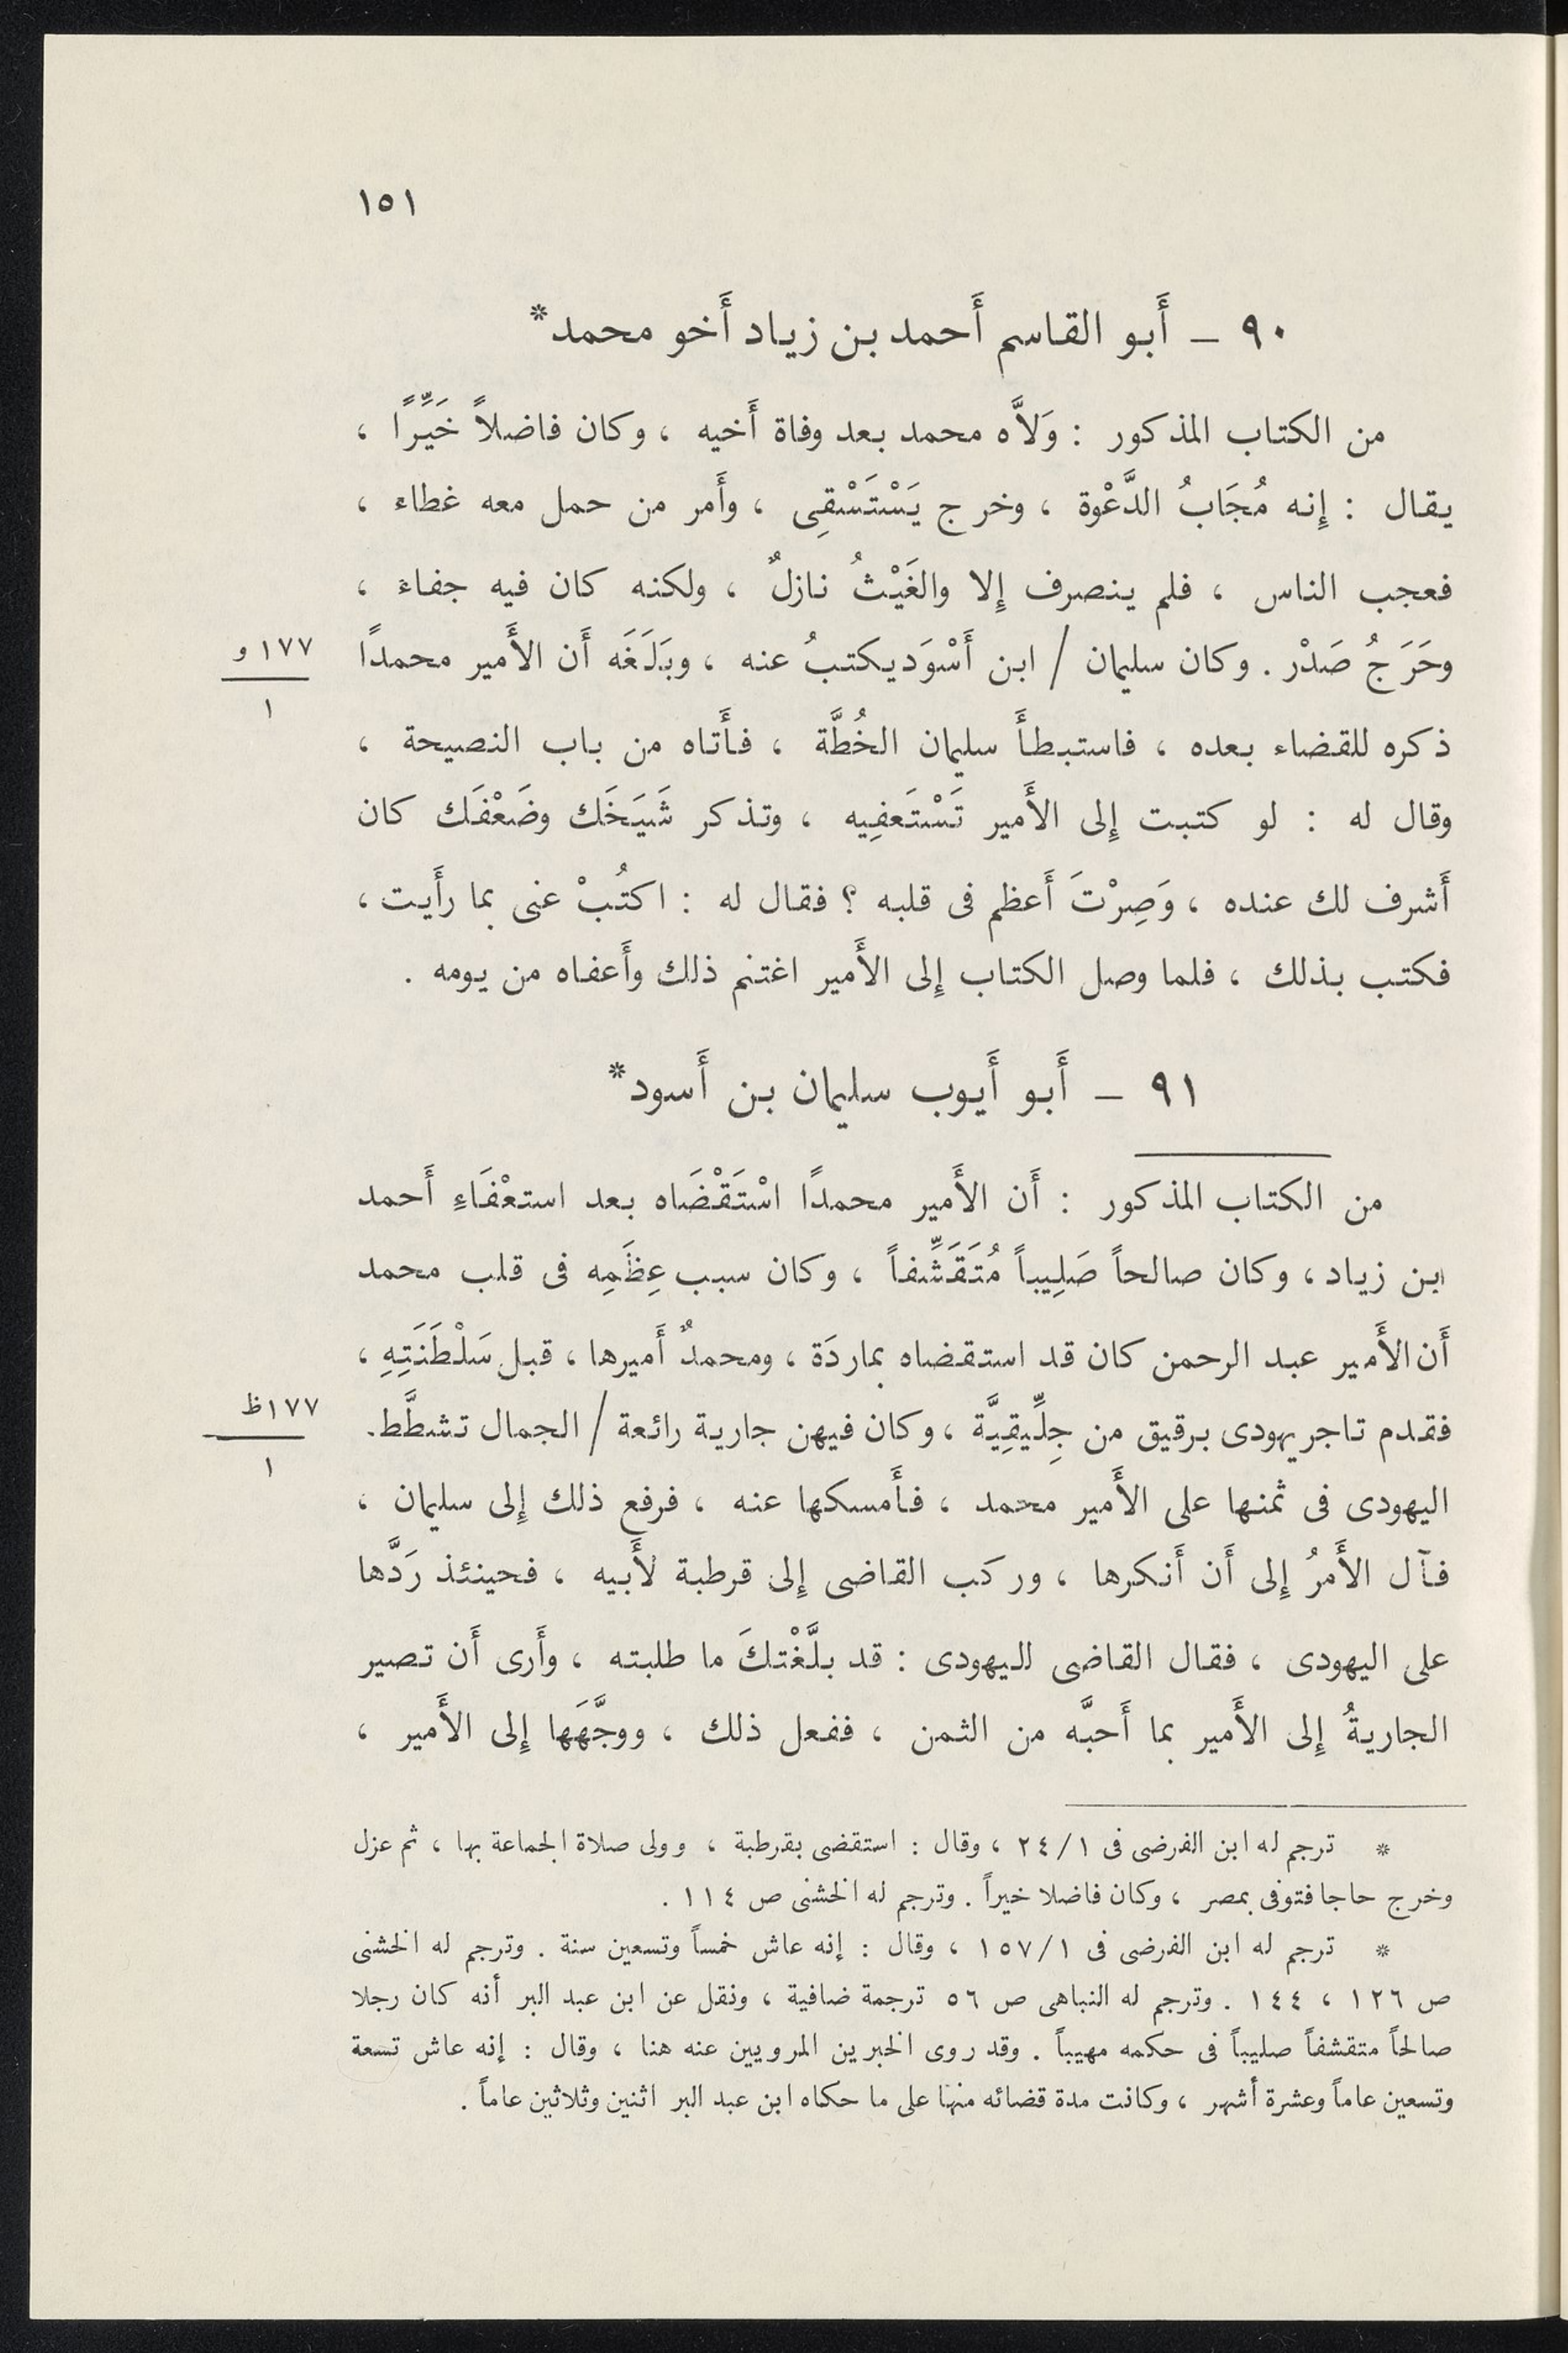 ١٥١
٩٠ ــ أَبو القاسم أَحمد بن زياد أَخو محمد*
من الكتاب المذكور : وَلاَّه محمد بعد وفاة أَخيه ، وكان فاضلاً خَيِّرًا ،
يقال : إِنه مُجَابُ الدَّعْوة ، وخرج يَسْتَسْقِى ، وأَمر من حمل معه غطاء ،
فعجب الناس ، فلم ينصرف إِلا والغَيْثُ نازلٌ ، ولكنه كان فيه جفاء ،
وحَرَجُ صَدْر . وكان سليمان / ابن أَسْوَد يكتبُ عنه ، وبَلَغَه أَن الأَمير محمدًا
١٧٧ و
١
ذكره للقضاء بعده ، فاستبطأَ سليمان الخُطَّة ، فأَتاه من باب النصيحة ،
وقال له : لو كتبت إِلى الأَمير تَسْتَعفِيه ، وتذكر شَيَخَك وضَعْفَك كان
أَشرف لك عنده ، وَصِرْتَ أَعظم فى قلبه ؟ فقال له : اكتُبْ عنى بما رأَيت ،
فكتب بذلك ، فلما وصل الكتاب إِلى الأَمير اغتنم ذلك وأَعفاه من يومه .
٩١ ــ أَبو أَيوب سليمان بن أَسود*
من الكتاب المذكور : أَن الأَمير محمدًا اسْتَقْضَاه بعد استعْفَاءِ أَحمد
ابن زياد ، وكان صالحاً صَلِيباً مُتَقَشِّفاً ، وكان سبب عِظَمِه فى قلب محمد
أَن الأَمير عبد الرحمن كان قد استقضاه بماردَة ، ومحمدٌ أَميرها ، قبل سَلْطَنَتِهِ ،
فقدم تاجر يهودى برقيق من جِلِّيقِيَّة ، وكان فيهن جارية رائعة / الجمال تشطَّط.
١٧٧ ظ
١
اليهودى فى ثمنها على الأَمير محمد ، فأَمسكها عنه ، فرفع ذلك إِلى سليمان ،
فآل الأَمرُ إِلى أَن أَنكرها ، وركب القاضى إِلى قرطبة لأَبيه ، فحينئذ رَدَّها
على اليهودى ، فقال القاضى لليهودى : قد بلَّغْتكَ ما طلبته ، وأَرى أَن تصير
الجاريةُ إِلى الأَمير بما أَحبَّه من الثمن ، ففعل ذلك ، ووجَّهَها إِلى الأَمير ،
* ترجم له ابن الفرضى فى ٢٤/١ ، وقال : استقضى بقرطبة ، وولى صلاة الجماعة بها ، ثم عزل
وخرج حاجا فتوفى بمصر ، وكان فاضلا خيراً . وترجم له الخشنى ص ١١٤ .
* ترجم له ابن الفرضى فى ١٥٧/١ ، وقال : إنه عاش خمساً وتسعين سنة . وترجم له الخشنى
ص ١٢٦ ، ١٤٤ . وترجم له النباهى ص ٥٦ ترجمة ضافية ، ونقل عن ابن عبد البر أنه كان رجلا
صالحاً متقشفاً صليباً فى حكمه مهيباً . وقد روى الخبرين المرويين عنه هنا ، وقال : إنه عاش تسعة
وتسعين عاماً وعشرة أشهر ، وكانت مدة قضائه منها على ما حكاه ابن عبد البر اثنين وثلاثين عاماً .